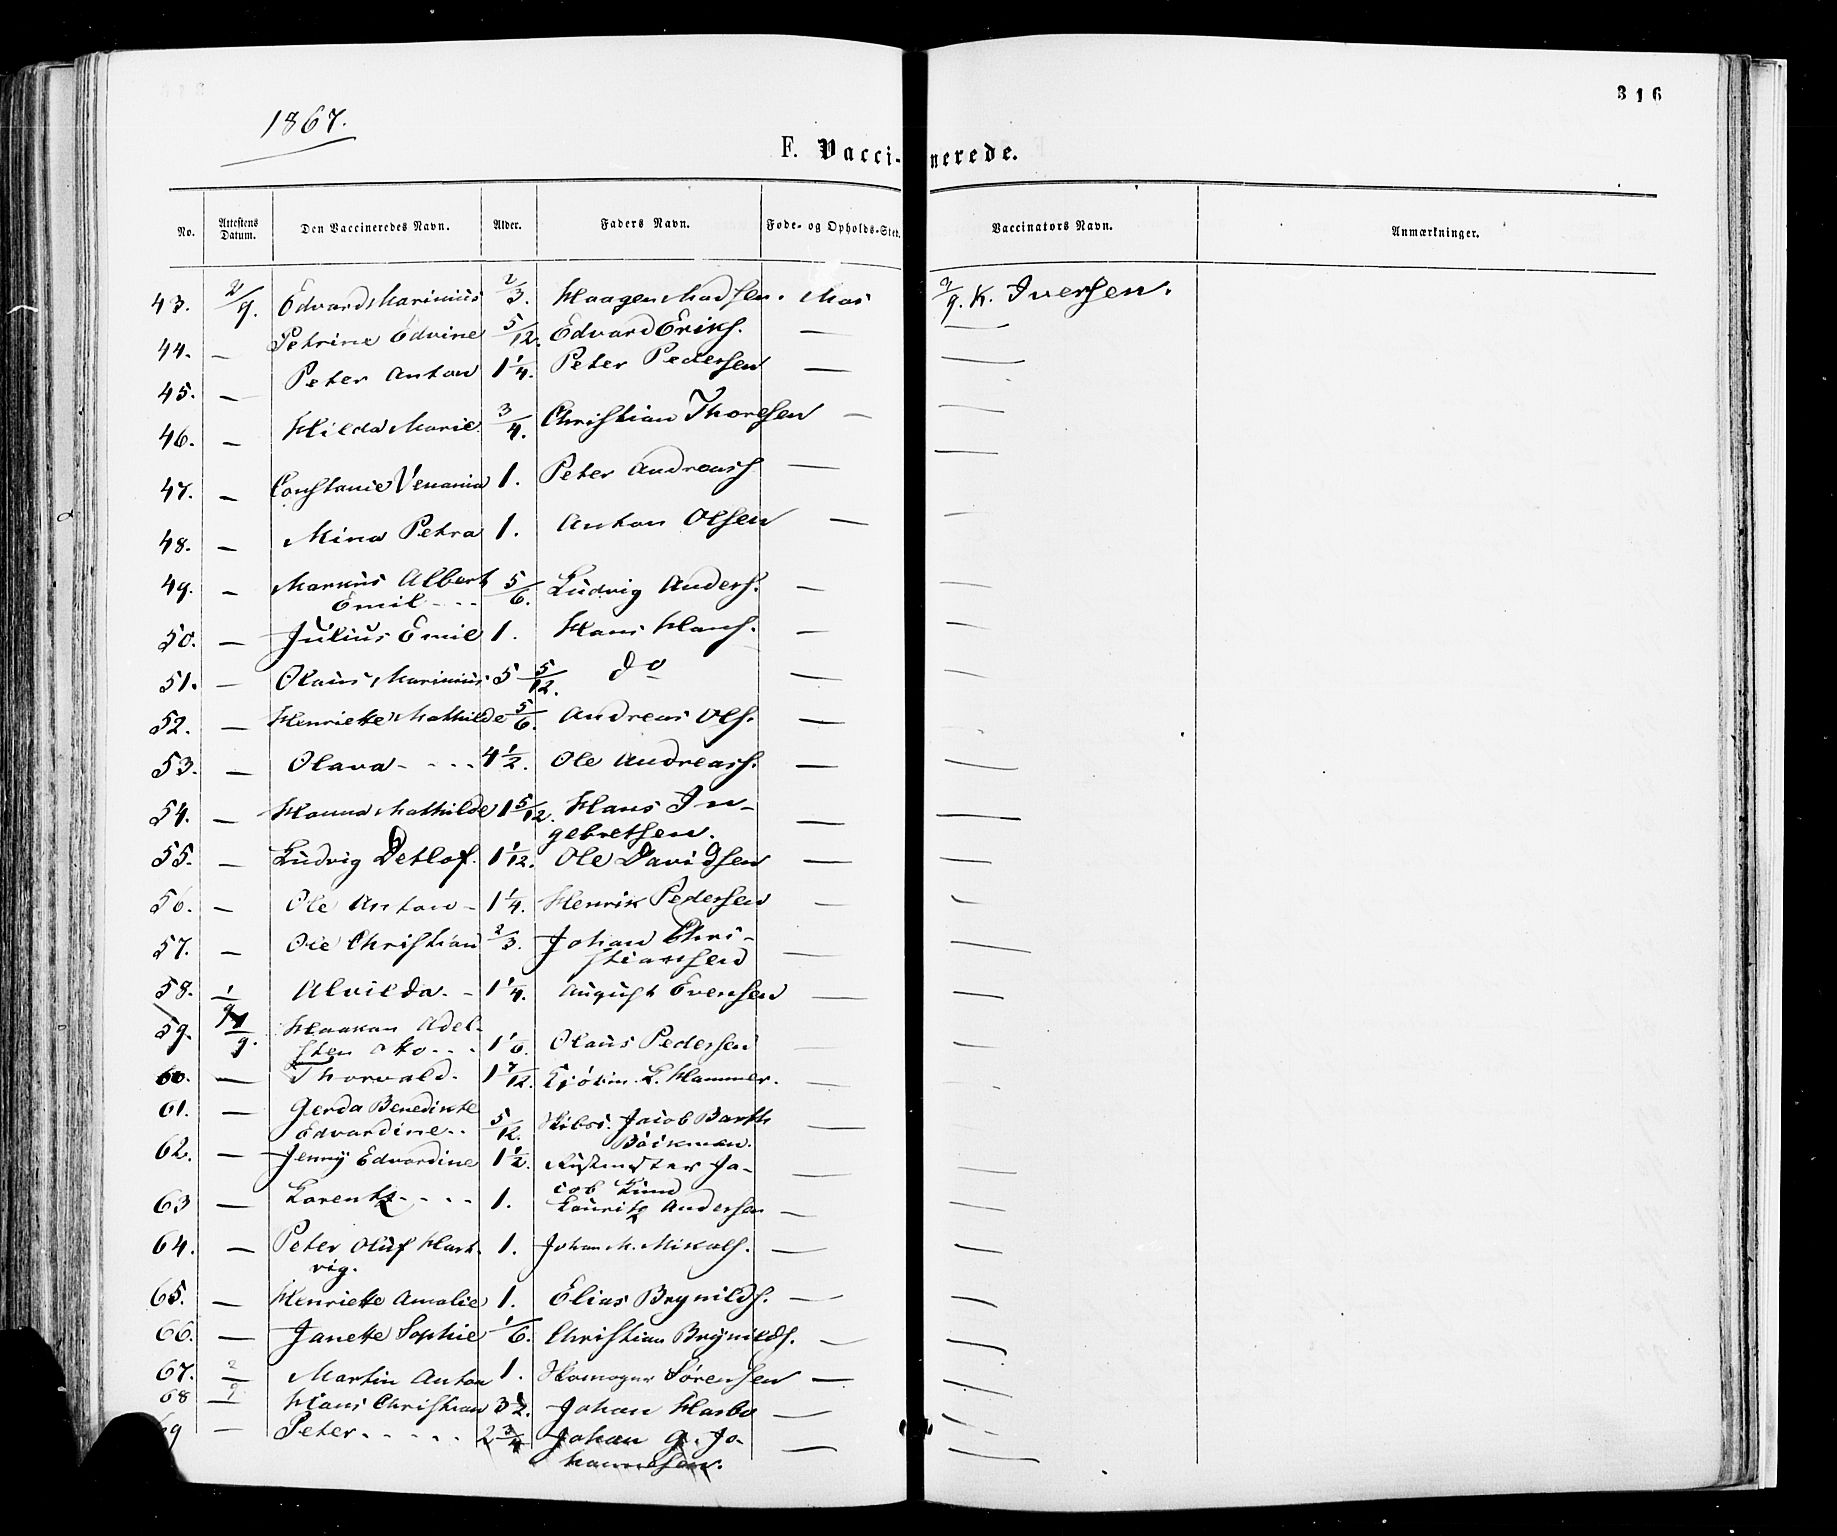 316
1867.
F. Vaccinerede.
No. Attestens Datum. Den Vaccineredes Navn. Alder. Faders Navn. Føde- og Opholds-Sted. Vaccinators Navn. Anmærkninger.
43. 2/9. Edvard Marinius 2/3. Haagen Madsen. Mos 2/9. K. Iversen.
44. — Petrine Edvine 5/12. Edvard Eriks. — —
45. — Peter Anton 1 1/4. Peter Pedersen — —
46. — Hilda Marie 3/4. Christian Thoresen — —
47. — Constanse Venania 1. Peter Andreass — —
48. — Mina Petra 1. Anton Olsen — —
49. — Markus Albert 5/6. Ludvig Anders. — —
Emil
50. — Julius Emil 1. Hans Hans. — —
51. — Olaus Marinius 5 5/12. do — —
52. — Henriette Mathilde 5/6. Andreas Ols. — —
53. — Olava 4 1/2. Ole Andreass. — —
54. — Hanna Mathilde 1 5/12. Hans In- — —
gebretsen.
55. — Ludvig Detlof. 1 1/12. Ole Davidsen — —
56. — Ole Anton 1 1/4. Henrik Pedersen — —
57. — Ole Christian 2/3. Johan Chri- — —
stiansen
58. 1/9 Alvilda 1 1/4. August Evensen — —
59. /9. Haakon Adel-
sten Otto 1 1/6. Olaus Pedersen — —
60. — Thorvald. 1 7/12. Kjøbm. L. Hammer. — —
61. — Gerda Benedikte
Edvardine 5/12. Skibsr. Jacob Barth — —
Böckman.
62. — Jenny Edvardine 1 1/2. Ja- — —
cob Lund
63 — Lorentz 1. Lauritz Andersen — —
64. — Peter Oluf Hart- 1. Johan M. Mikals. — —
vig.
65. — Henriette Amalie 1. Elias Brynilds. — —
66. — Janette Sophie 1/6. Christian Brynilds. — —
67. 2/9 Martin Anton 1. Skomager Sørensen — —
68 — Hans Christian 3 1/2. Johan Harbo — —
69 — Peter 2 3/4 Johan G. Jo- — —
hannesen.